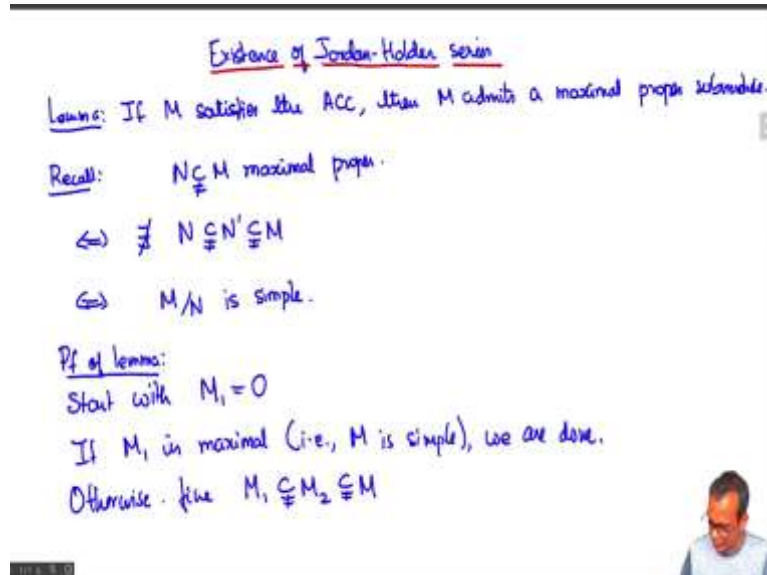 Existence of Jordan-Holder series
Lemma: If M satisfies the ACC, then M admits a maximal proper submodule.
Recall: N ⊊ M maximal proper.
⇔ ∄ N ⊊ N' ⊊ M
⇔ M/N is simple.
Pf of lemma:
Start with M₁ = 0
If M₁ is maximal (i.e., M is simple), we are done.
Otherwise. M₁ ⊊ M₂ ⊊ M